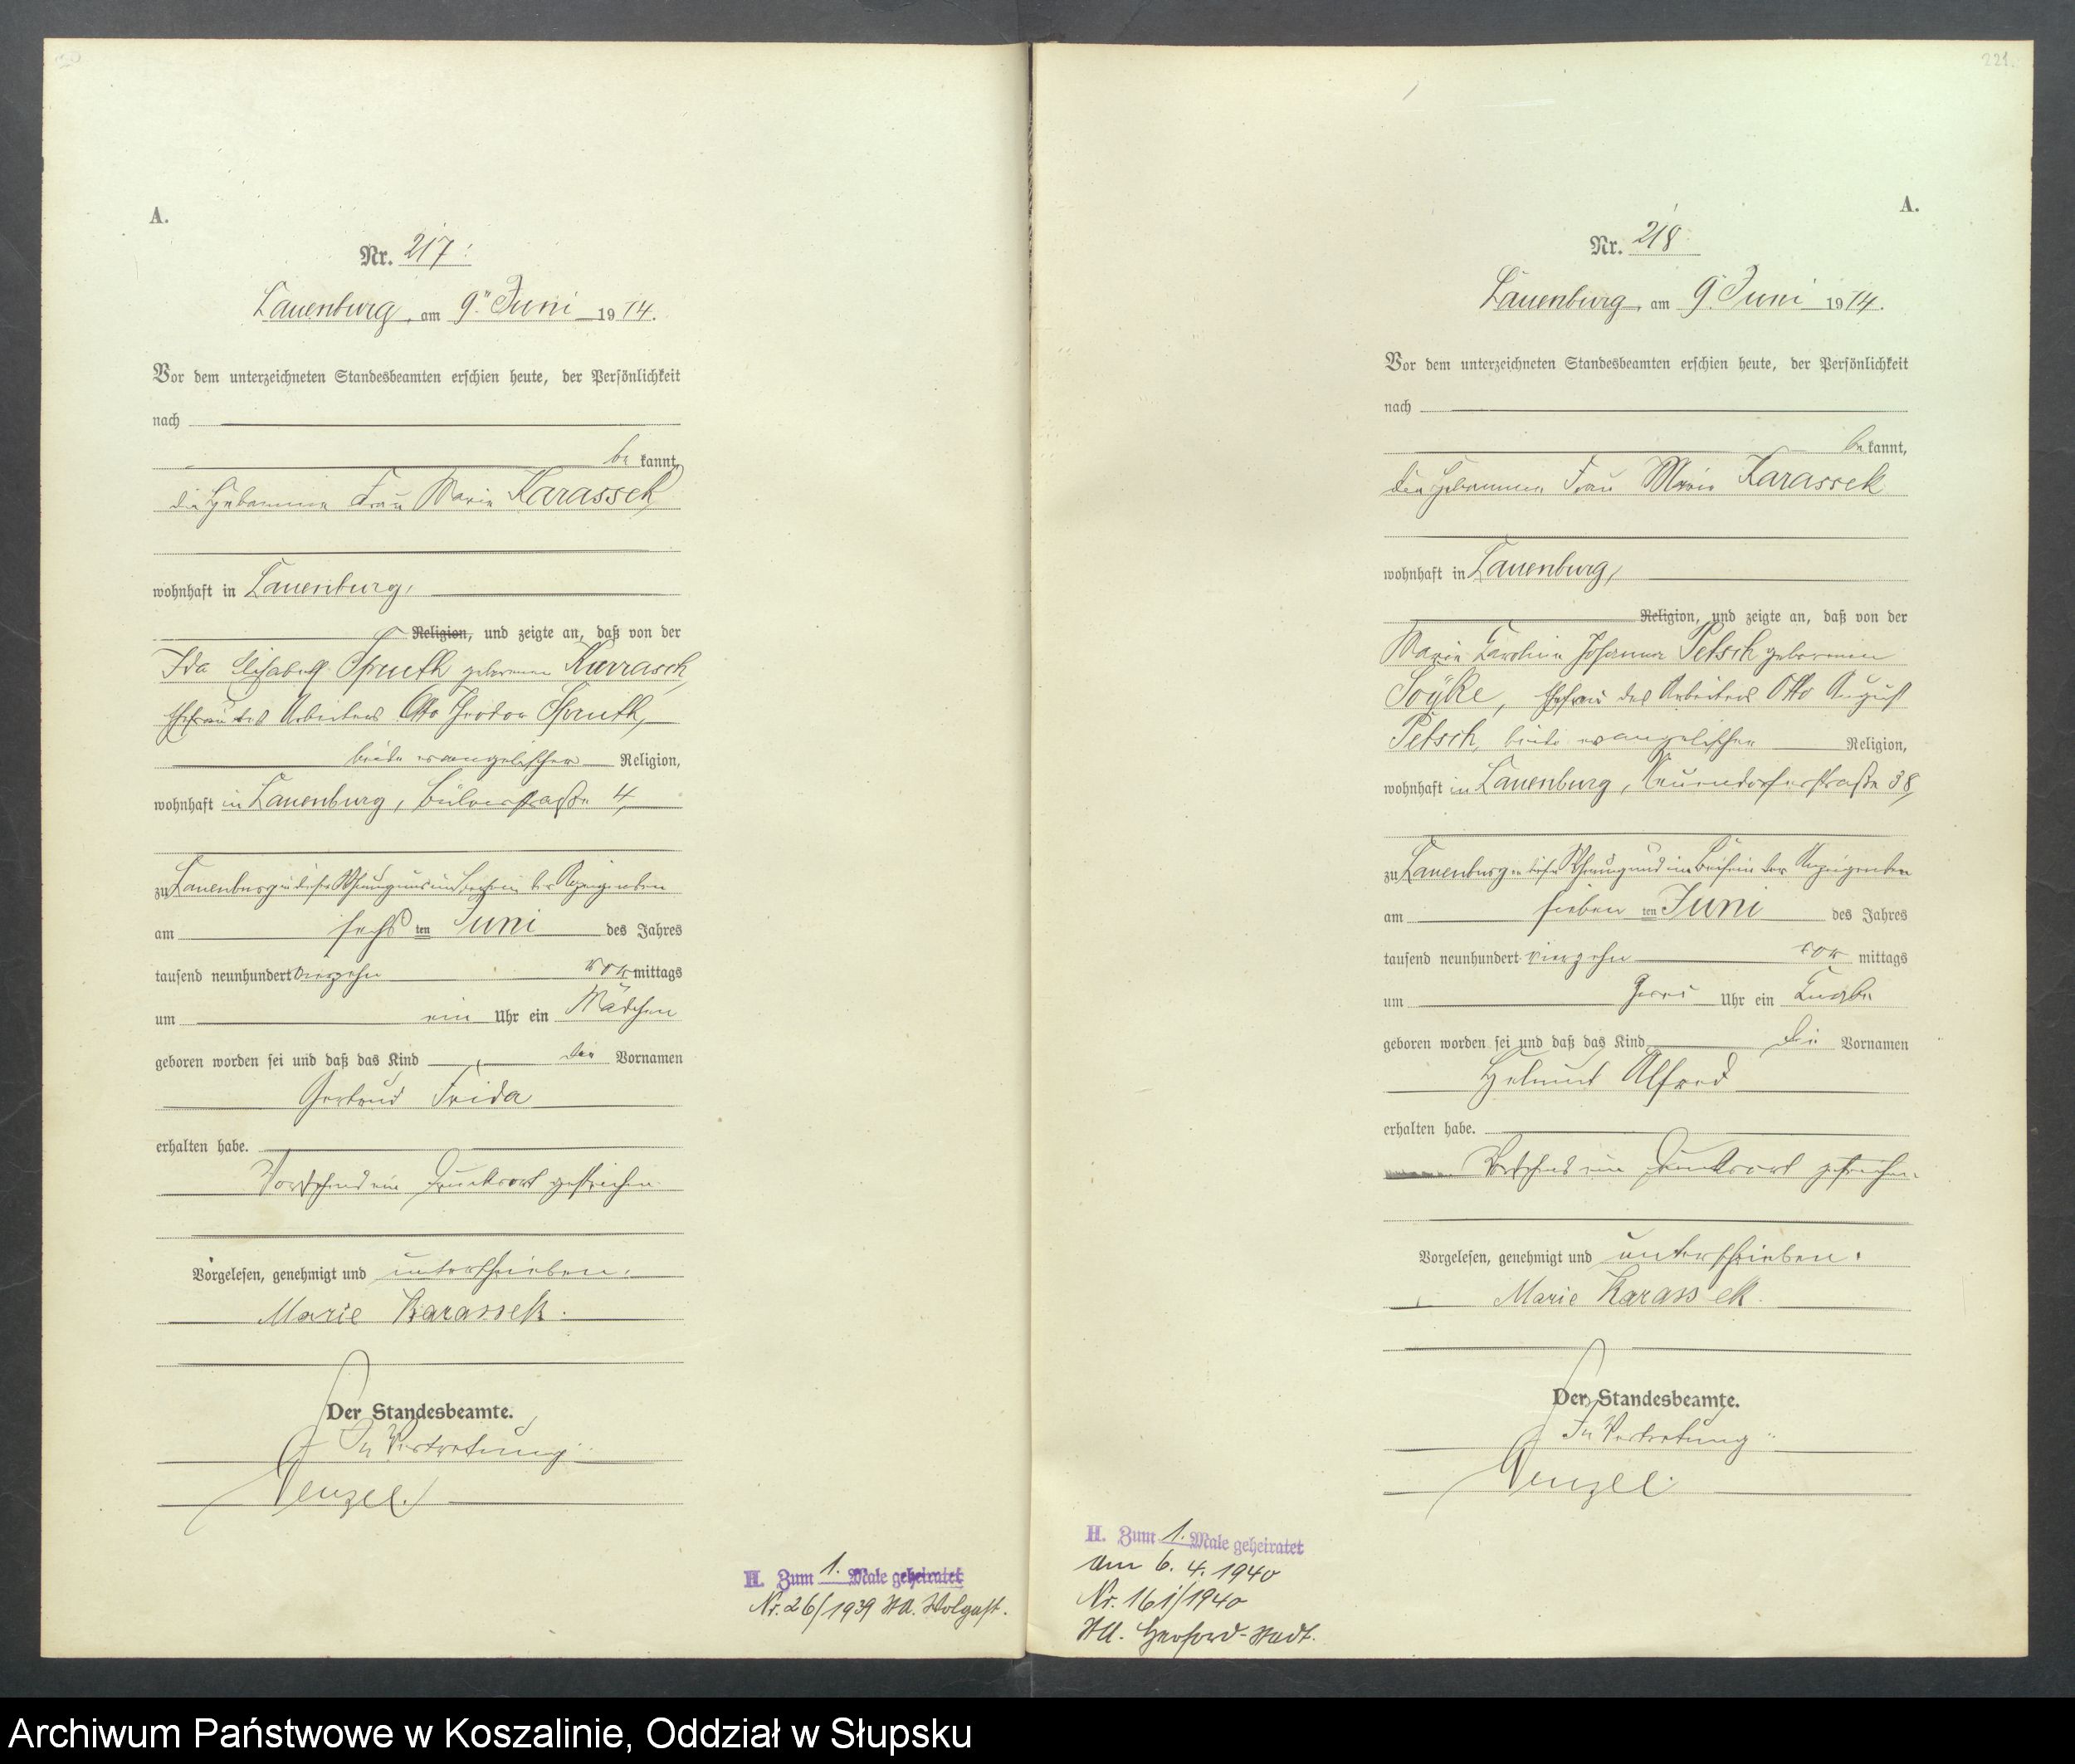 A.
Nr. 217.
Lauenburg, am 9. Juni 1914.
Vor dem unterzeichneten Standesbeamten erschien heute, der Persönlichkeit
nach
bekannt,
die Hebamme Frau Marie Karassek
wohnhaft in Lauenburg,
Religion, und zeigte an, daß von der
Ida Elisabeth Spruth geborenen Kurrasch,
Ehefrau des Arbeiters Otto Theodor Spruth,
beide evangelischer Religion,
wohnhaft in Lauenburg, Bülowstraße 4,
zu Lauenburg in dieser Wohnung und im Beisein der Anzeigenden
am sechsten Juni des Jahres
tausend neunhundert vierzehn vormittags
um ein Uhr ein Mädchen
geboren worden sei und daß das Kind die Vornamen
Gertrud Frida
erhalten habe.
Vorstehend ein Druckwort gestrichen.
Vorgelesen, genehmigt und unterschrieben.
Marie Karassek.
Der Standesbeamte.
In Vertretung:
Wenzel.
H. Zum 1. Male geheiratet
Nr. 26/1939 StA. Wolgast.
221.
A.
Nr. 218
Lauenburg, am 9. Juni 1914.
Vor dem unterzeichneten Standesbeamten erschien heute, der Persönlichkeit
nach
bekannt,
die Hebamme Frau Marie Karassek
wohnhaft in Lauenburg,
Religion, und zeigte an, daß von der
Marie Karoline Johanna Petsch geborenen
Soyke, Ehefrau des Arbeiters Otto August
Petsch, beide evangelischer Religion,
wohnhaft in Lauenburg, Neuendorferstraße 38,
zu Lauenburg in dieser Wohnung und im Beisein der Anzeigenden
am siebenten Juni des Jahres
tausend neunhundert vierzehn vormittags
um zwei Uhr ein Knabe
geboren worden sei und daß das Kind die Vornamen
Helmut Alfred
erhalten habe.
Vorstehend ein Druckwort gestrichen.
Vorgelesen, genehmigt und unterschrieben.
Marie Karassek.
Der Standesbeamte.
In Vertretung:
Wenzel.
H. Zum 1. Male geheiratet
am 6. 4. 1940
Nr. 161/1940
StA. Herford-Stadt.
Archiwum Państwowe w Koszalinie, Oddział w Słupsku